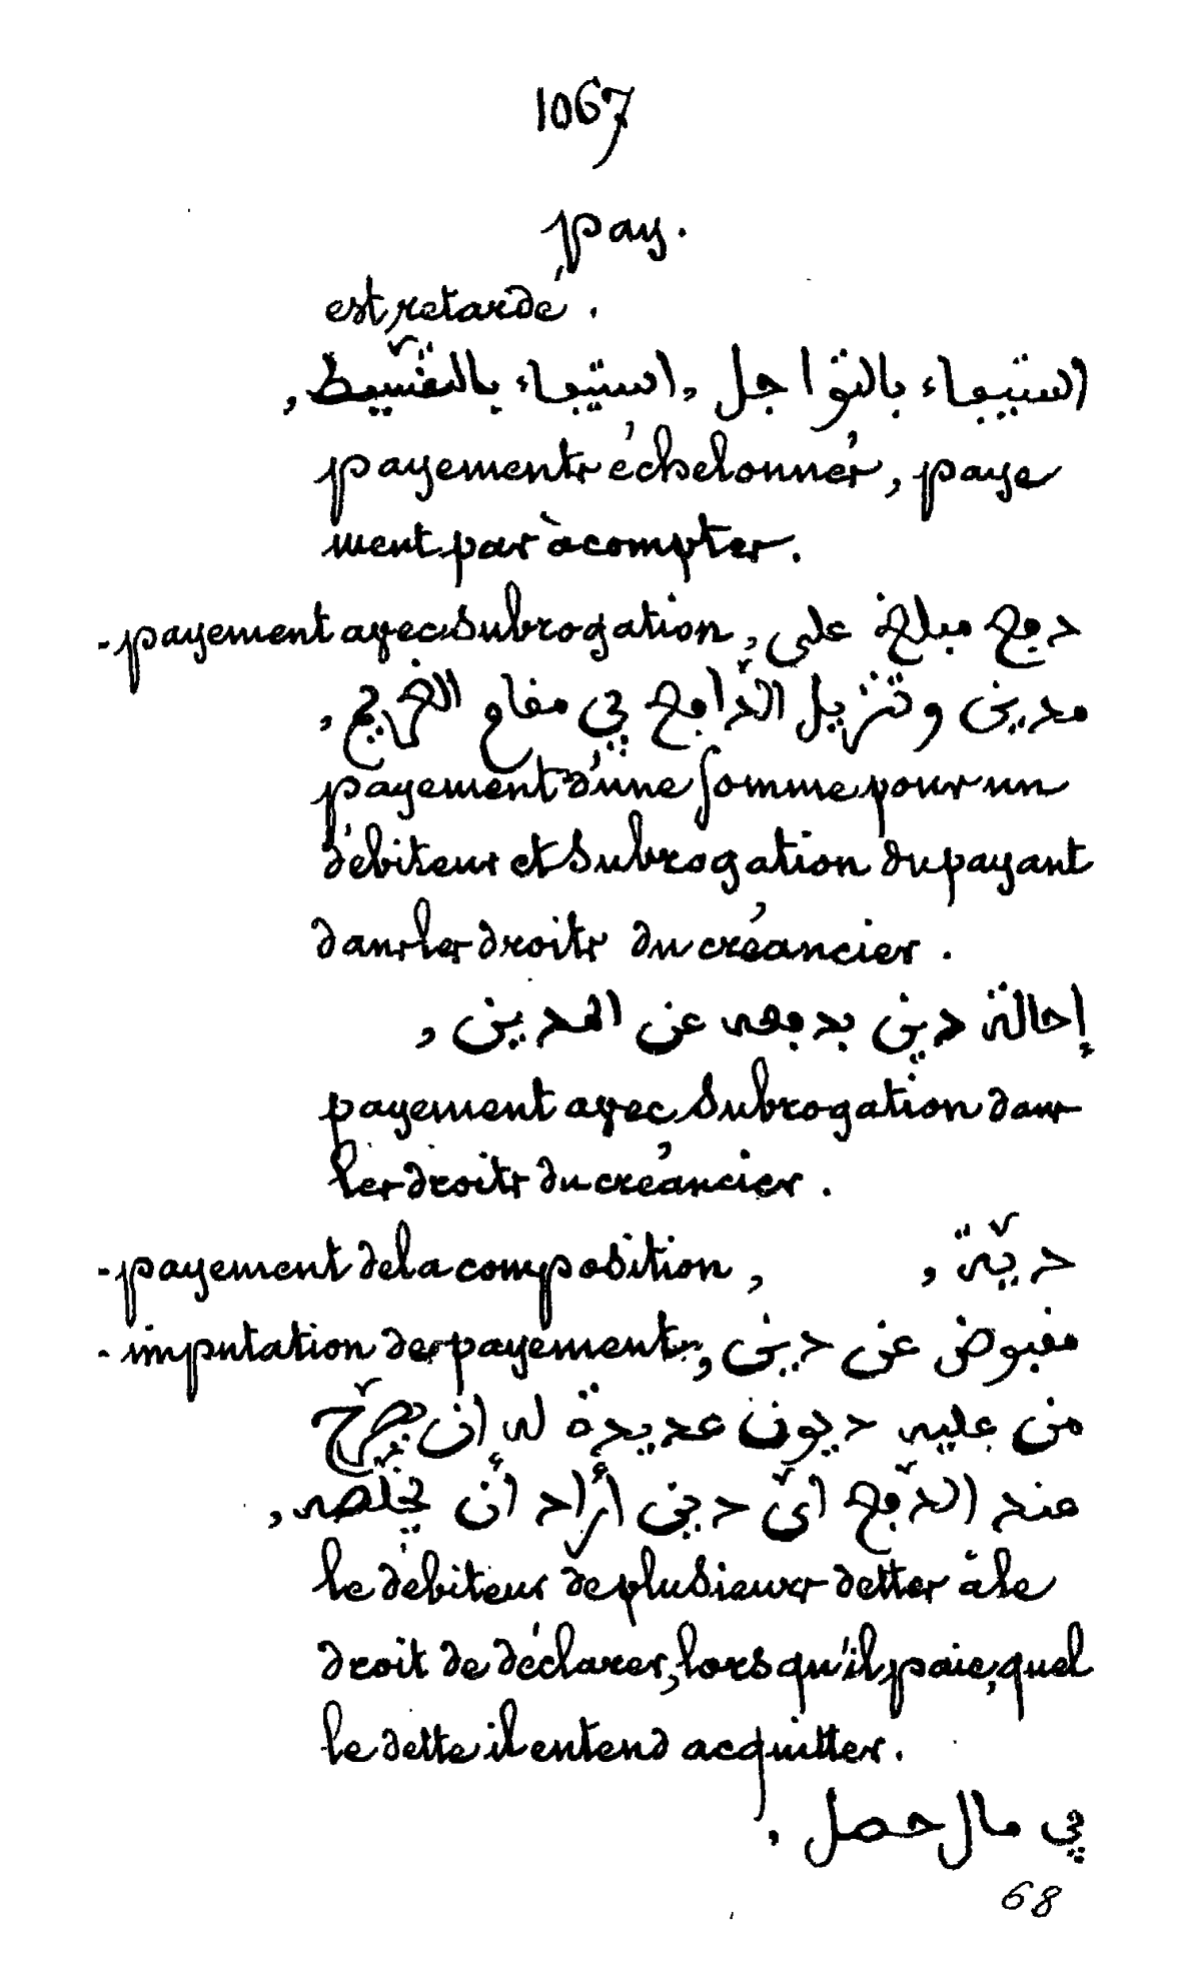 1067
pay.
est retardé.
استيفاء بالتواجل, استيفاء بالتقسيط,
payements échelonnés, paye
ment par àcomptes.
- payement avec subrogation, دفع مبلغ على
مدين وتنزيل الدّافع في مقام الغريم,
payement d'une somme pour un
débiteur et subrogation du payant
dans les droits du créancier.
إحالة دين بدفعه عن المدين,
payement avec subrogation dans
les droits du créancier.
- payement de la composition, ديّة,
- imputation des payements, مقبوض عن دين,
من عليه ديون عديدة له إن يصرّح
عند الدّفع أيّ دين أراد أن يخلّصه,
le débiteur de plusieurs dettes à le
droit de déclarer, lorsqu'il paie, quel
le dette il entend acquitter.
في مال حصل,
68